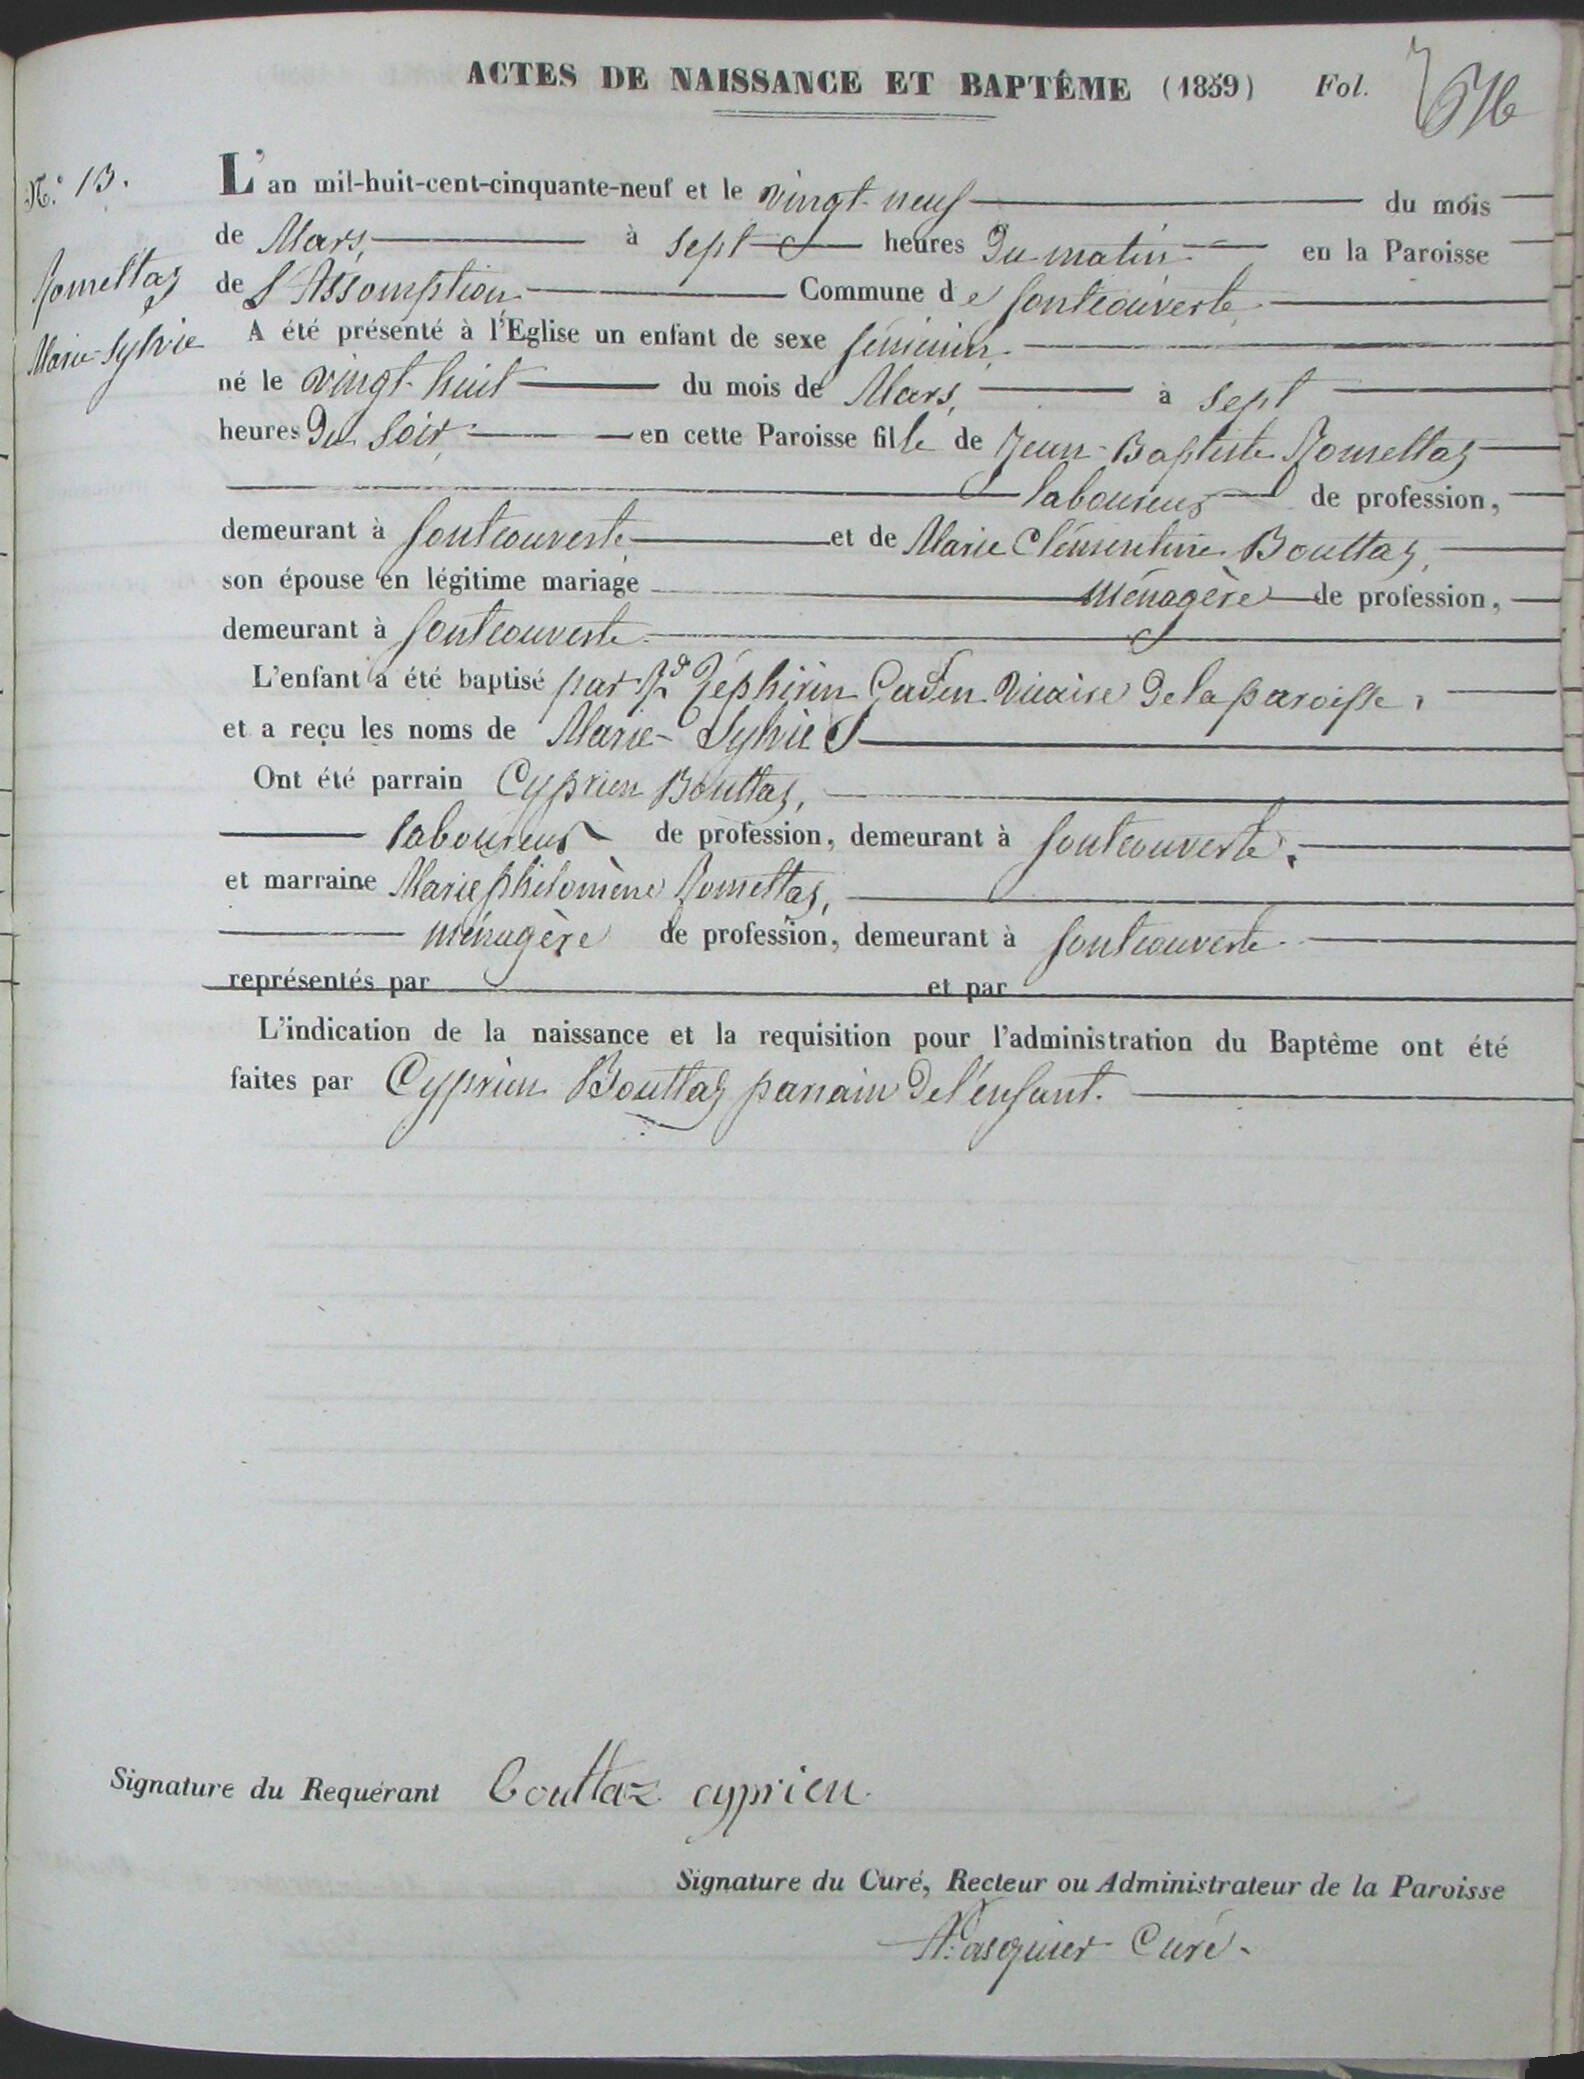 ACTES DE NAISSANCE ET BAPTÊME (1859) Fol.
N.° 13.
L'an mil-huit-cent-cinquante-neuf et le vingt-neuf du mois
de Mars, à sept heures du matin en la Paroisse
Romettaz
de L'Assomption Commune de fontcouverte
Marie-Sylvie
A été présenté à l'Église un enfant de sexe féminin.
né le vingt-huit du mois de Mars, à sept
heures du soir, en cette Paroisse fille de Jean-Baptiste Romettaz
laboureur de profession,
demeurant à fontcouverte et de Marie Clémentine Bouttaz,
son épouse en légitime mariage ménagère de profession,
demeurant à fontcouverte
L'enfant a été baptisé par Rd Zéphirin vicaire de la paroisse,
et a reçu les noms de Marie-Sylvie
Ont été parrain Cyprien Bouttaz,
laboureur de profession, demeurant à fontcouverte,
et marraine Marie philomène Romettaz,
ménagère de profession, demeurant à fontcouverte
représentés par et par
L'indication de la naissance et la requisition pour l'administration du Baptême ont été
faites par Cyprien Bouttaz parrain de l'enfant.
Signature du Requérant bouttaz cyprien
Signature du Curé, Recteur ou Administrateur de la Paroisse
Pasquier Curé